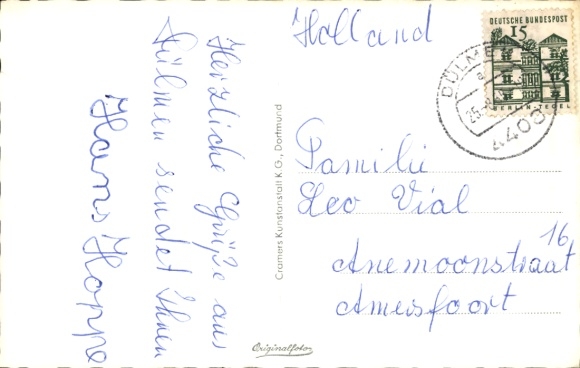 Herzliche Grüße aus
Dülmen sendet Ihnen
Hans Hoppe
Cramers Kunstanstalt K.G., Dortmund
Originalfoto
Holland
DEUTSCHE BUNDESPOST
15
BERLIN-TEGEL
DÜLMEN
4408
Familie
Leo Vial
Anemoonstraat 16
Amersfoort